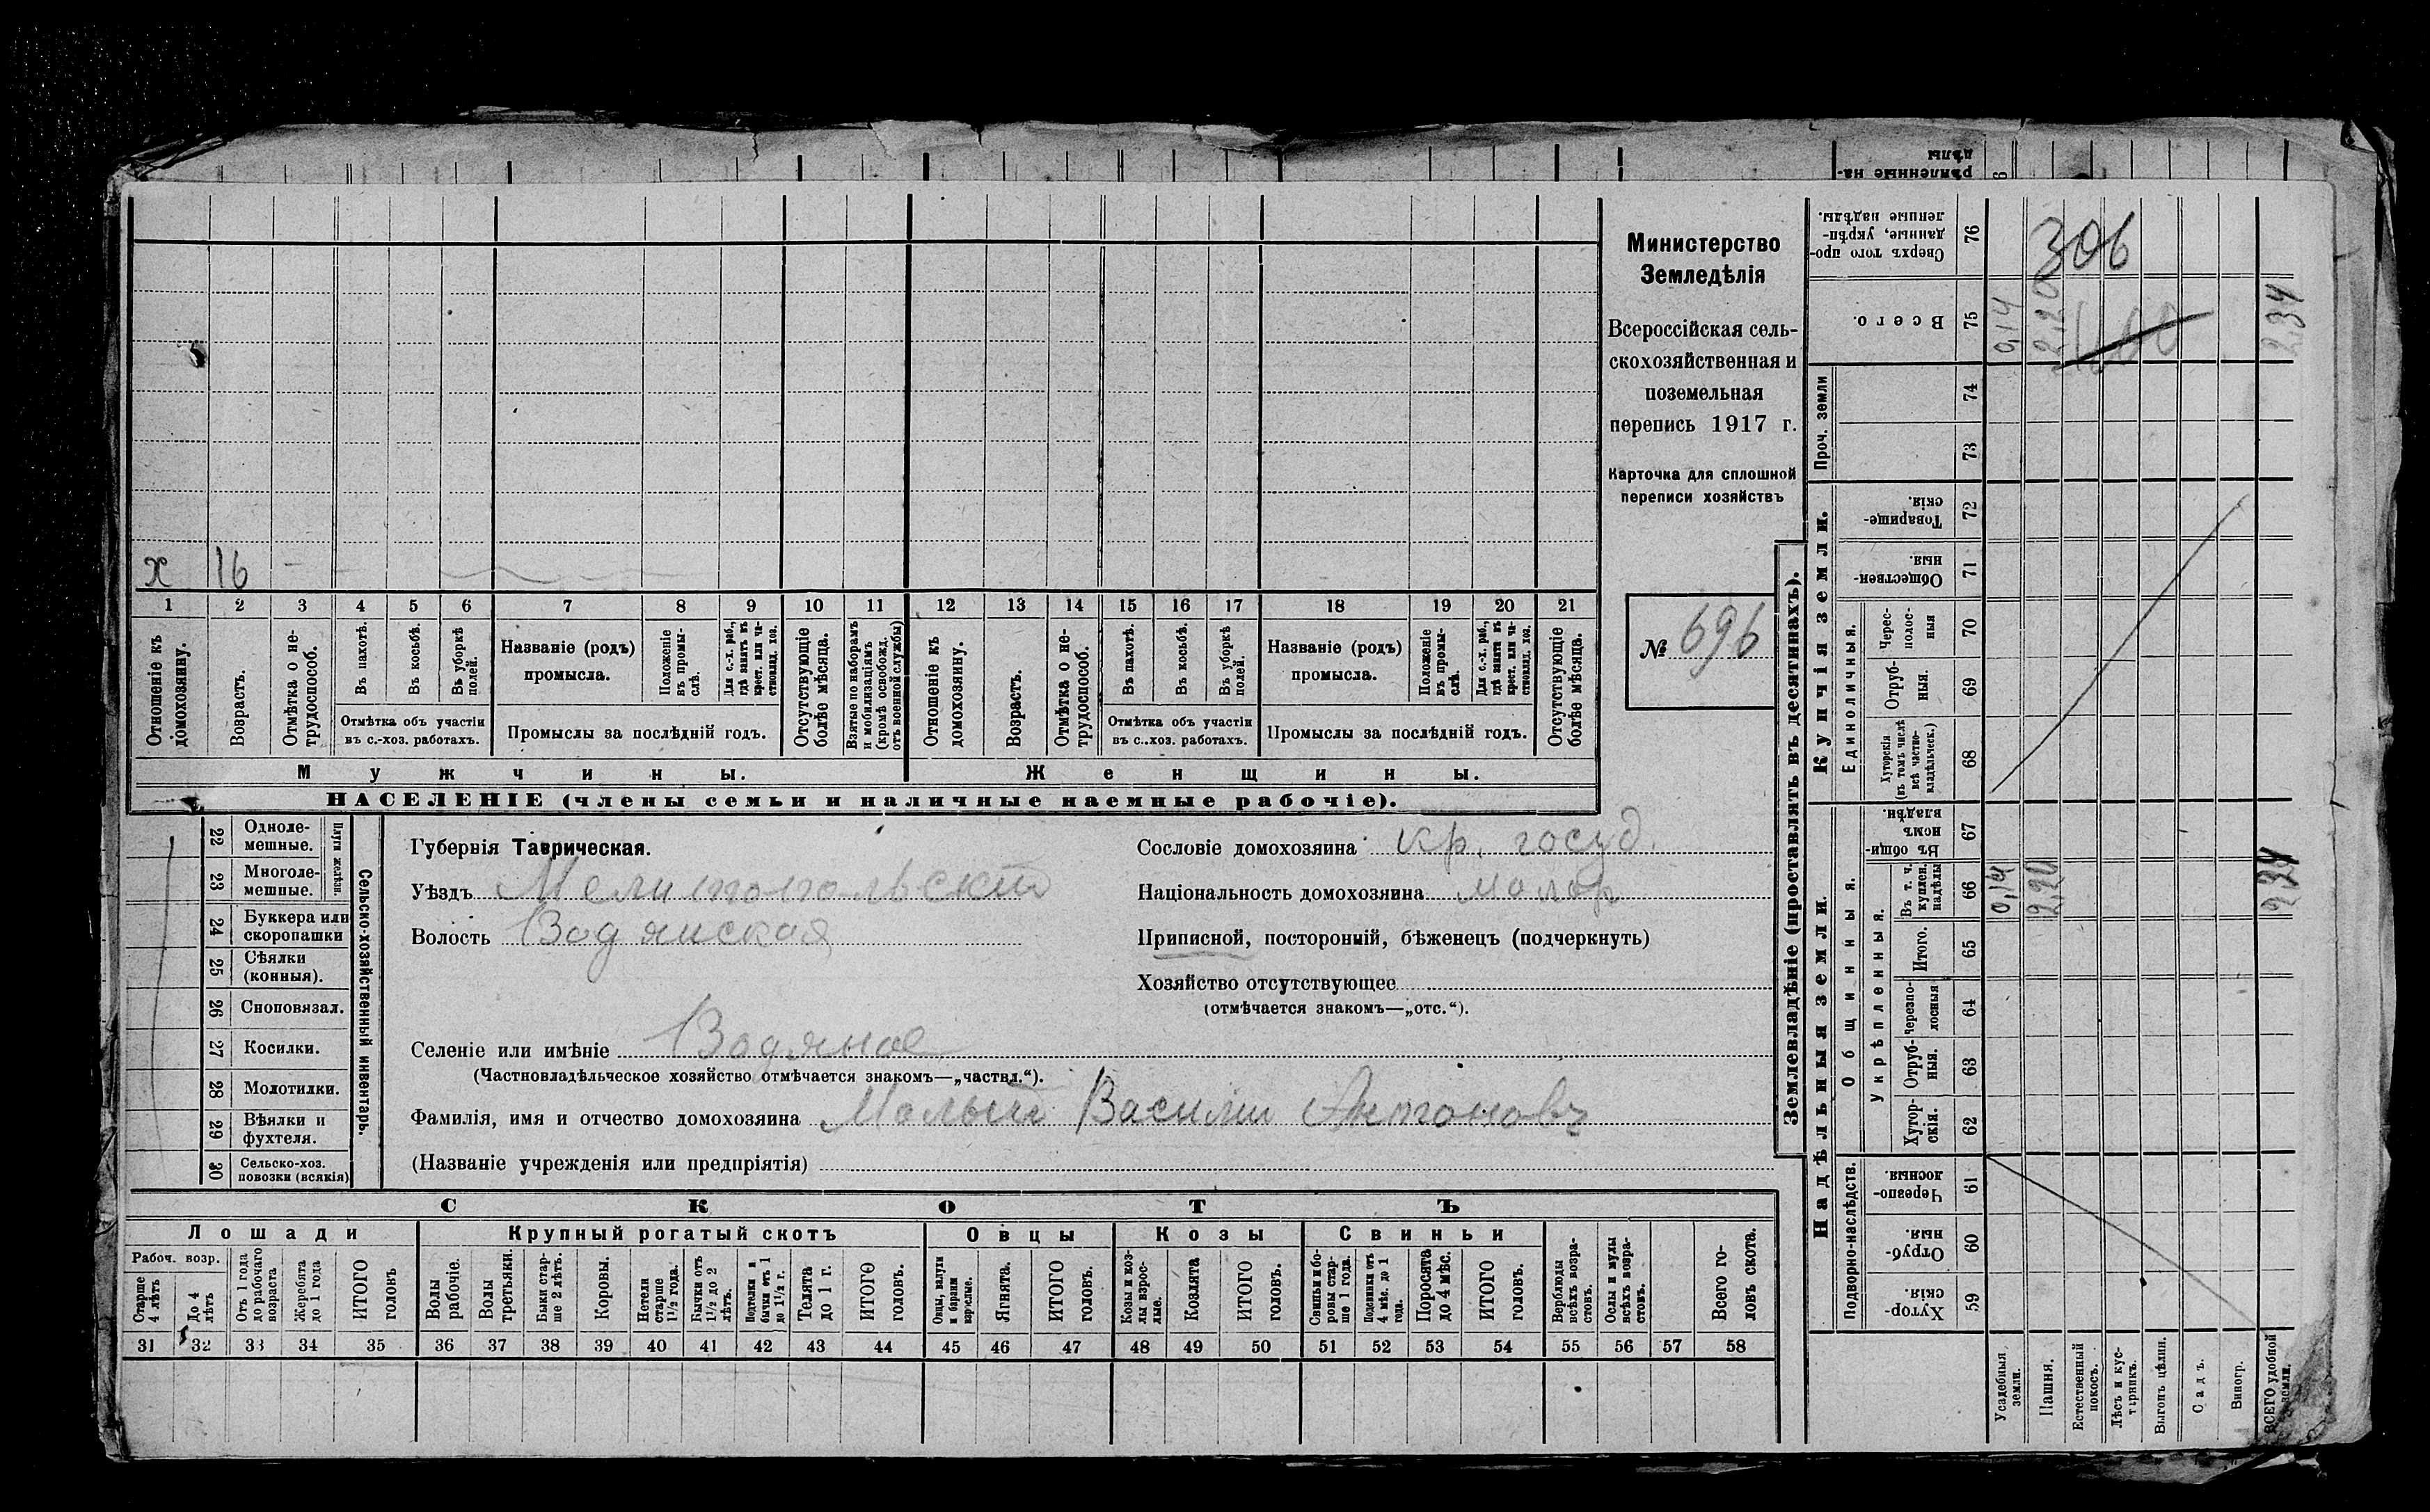 Министерство
Земледѣлія
Всероссійская сель-
скохозяйственная и
поземельная
перепись 1917 г.
Карточка для сплошной
переписи хозяйствъ
№ 696
х 16
1 2 3 4 5 6 7 8 9 10 11 12 13 14 15 16 17 18 19 20 21
Отношеніе къ домохозяину.
Возрастъ.
Отмѣтка о не-трудоспособ.
Въ пахотѣ.
Въ косьбѣ.
Въ уборкѣ полей.
Отмѣтка объ участіи
въ с.-хоз. работахъ.
Названіе (родъ)
промысла.
Положеніе въ промы-слѣ.
Для с.-х. раб., гдѣ занятъ въ крест. или ча-стновлад. хоз.
Промыслы за послѣдній годъ.
Отсутствующіе болѣе мѣсяца.
Взятые по наборамъ и мобилизаціямъ (кромѣ освобожд. отъ военной службы)
Отношеніе къ домохозяину.
Возрастъ.
Отмѣтка о не-трудоспособ.
Въ пахотѣ.
Въ косьбѣ.
Въ уборкѣ полей.
Отмѣтка объ участіи
въ с.-хоз. работахъ.
Названіе (родъ)
промысла.
Положеніе въ промы-слѣ.
Для с.-х. раб., гдѣ заняты въ крест. или ча-стновлад. хоз.
Промыслы за послѣдній годъ.
Отсутствующіе болѣе мѣсяца.
Мужчины.
Женщины.
НАСЕЛЕНІЕ (члены семьи и наличные наемные рабочіе).
Сельско-хозяйственный инвентарь.
Плуги желѣзн.
22 Одноле-мешные.
23 Многоле-мешные.
24 Буккера или скоропашки
25 Сѣялки (конныя).
26 Сноповязал.
27 Косилки.
28 Молотилки.
29 Вѣялки и фухтеля.
30 Сельско-хоз. повозки (всякія)
Губернія Таврическая.
Уѣздъ Мелитопольскій
Волость Водянская
Селеніе или имѣніе Водяное
(Частновладѣльческое хозяйство отмѣчается знакомъ—„частвл.“).
Фамилія, имя и отчество домохозяина Малый Василій Антоновъ
(Названіе учрежденія или предпріятія)
Сословіе домохозяина кр. госуд.
Національность домохозяина малор
Приписной, посторонній, бѣженецъ (подчеркнуть)
Хозяйство отсутствующее
(отмѣчается знакомъ—„отс.“).
СКОТЪ
Лошади
Крупный рогатый скотъ
Овцы
Козы
Свиньи
Рабоч. возр.
Старше 4 лѣтъ
До 4 лѣтъ
Отъ 1 года до рабочаго возраста
Жеребята до 1 года
ИТОГО головъ
Волы рабочіе.
Волы третьяки.
Быки стар-ше 2 лѣтъ.
Коровы.
Нетели старше 1½ года.
Бычки отъ 1½ до 2 лѣтъ.
Подтелки и бычки отъ 1 до 1½ г.
Телята до 1 г.
ИТОГО головъ.
Овцы, валухи и бараны взрослые.
Ягнята.
ИТОГО головъ.
Козы и коз-лы взрос-лые.
Козлята
ИТОГО головъ.
Свиньи и бо-ровы стар-ше 1 года.
Подсвинки отъ 4 мѣс. до 1 года.
Поросята до 4 мѣс.
ИТОГО головъ.
Верблюды всѣхъ возра-стовъ.
Ослы и мулы всѣхъ возра-стовъ.
Всего го-ловъ скота.
31 32 33 34 35 36 37 38 39 40 41 42 43 44 45 46 47 48 49 50 51 52 53 54 55 56 57 58
Землевладѣніе (проставлять въ десятинахъ).
Сверхъ того про-данные, укрѣп-ленные надѣлы. 76
306
Всего. 75
0,14 2,20 2,34
Проч. земли
74
73
Купчія земли.
Товарище-скія 72
Обществен-ныя 71
Единоличныя.
Черес-полос-ныя 70
Отруб-ныя. 69
Хуторскія (въ томъ числѣ всѣ частно-владѣльческ.) 68
Надѣльныя земли.
Общинныя.
Въ общи-номъ владѣн. 67
Укрѣпленныя.
Въ т. ч. куплен. надѣлы 66
0,14 2,20 2,34
Итого. 65
Черезпо-лосныя 64
Отруб-ныя. 63
Хутор-скія. 62
Подворно-наслѣдств.
Черезпо-лосныя 61
Отруб-ныя. 60
Хутор-скія. 59
Усадебныя земли.
Пашня.
Естественный покосъ.
Лѣсъ и кус-тарникъ.
Выгонъ цѣлин.
Садъ.
Виногр.
ВСЕГО удобной земли.
рѣпленные на-
дѣлы